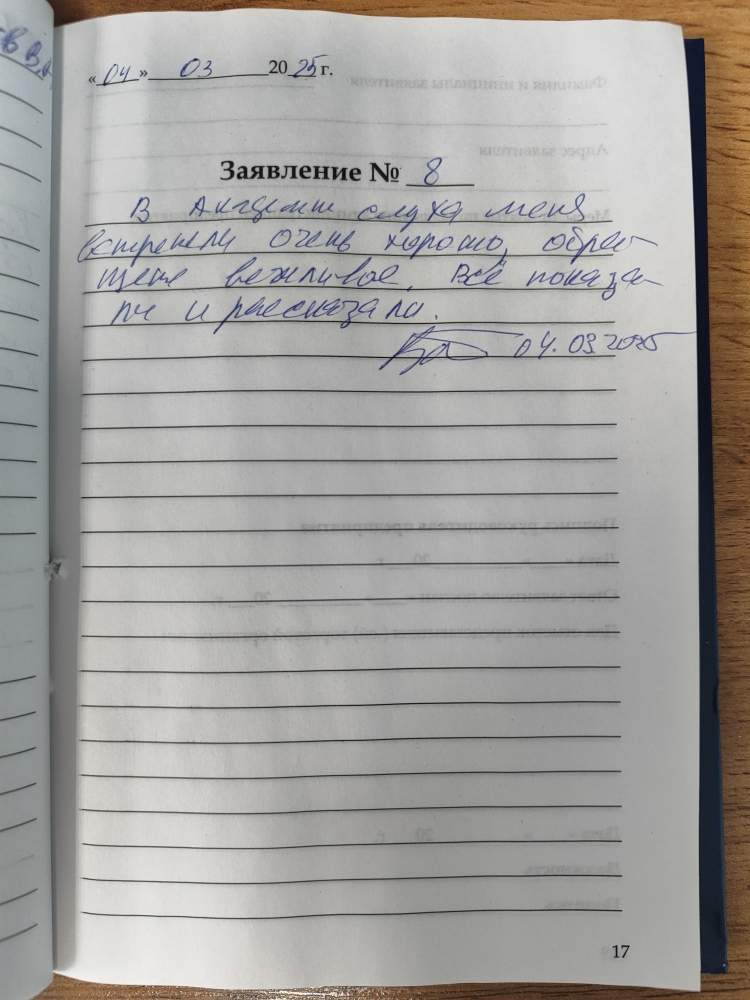 «04» 03 2025 г.
Заявление № 8
В Академии слуха меня
встретили очень хорошо, обра-
щение вежливое. Всё показа-
ли и рассказали.
04.03.2025
17